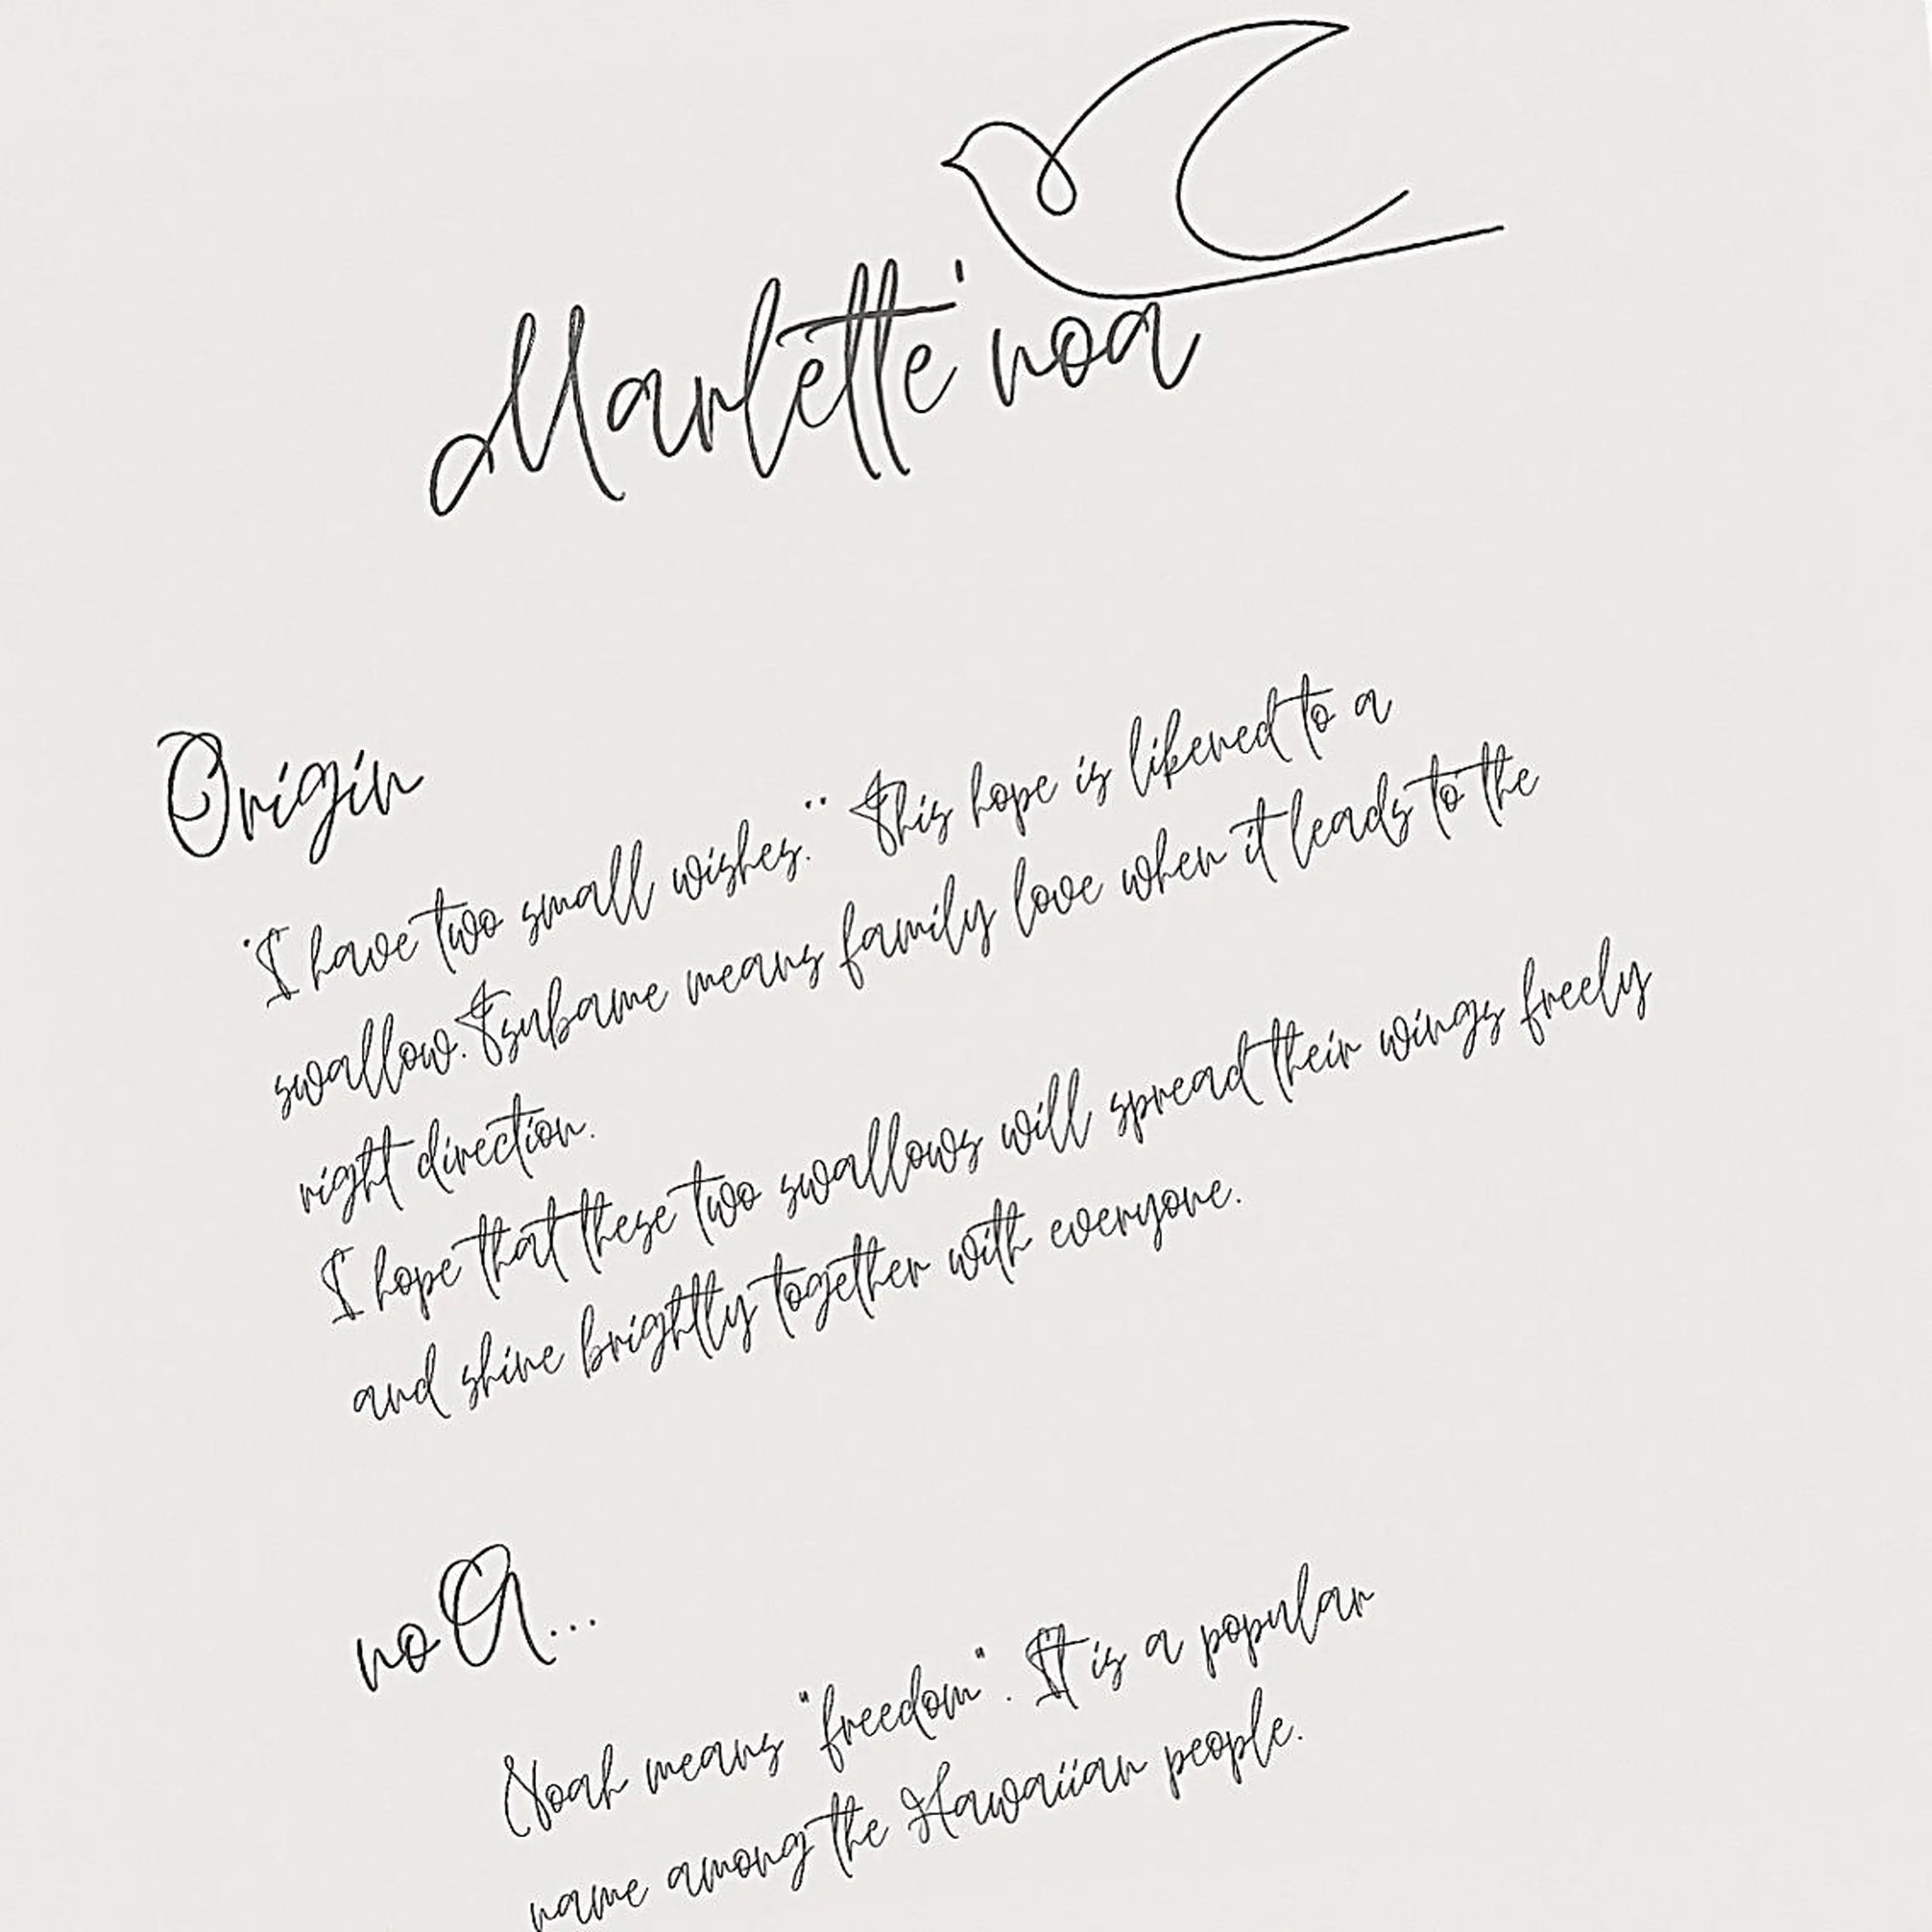 Marlette' noa
Origin
"I have two small wishes." This hope is likened to a
swallow. Tsubame means family love when it leads to the
right direction.
I hope that these two swallows will spread their wings freely
and shine brightly together with everyone.
noA...
Noah means "freedom". It is a popular
name among the Hawaiian people.